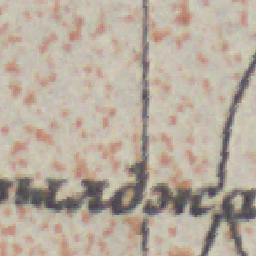 ылджа